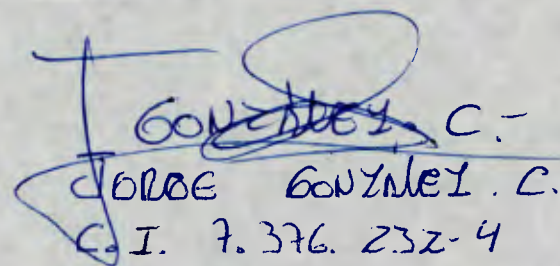 J GONZALEZ. C.-
JORGE GONZALEZ. C.
C.I. 7.376.232-4